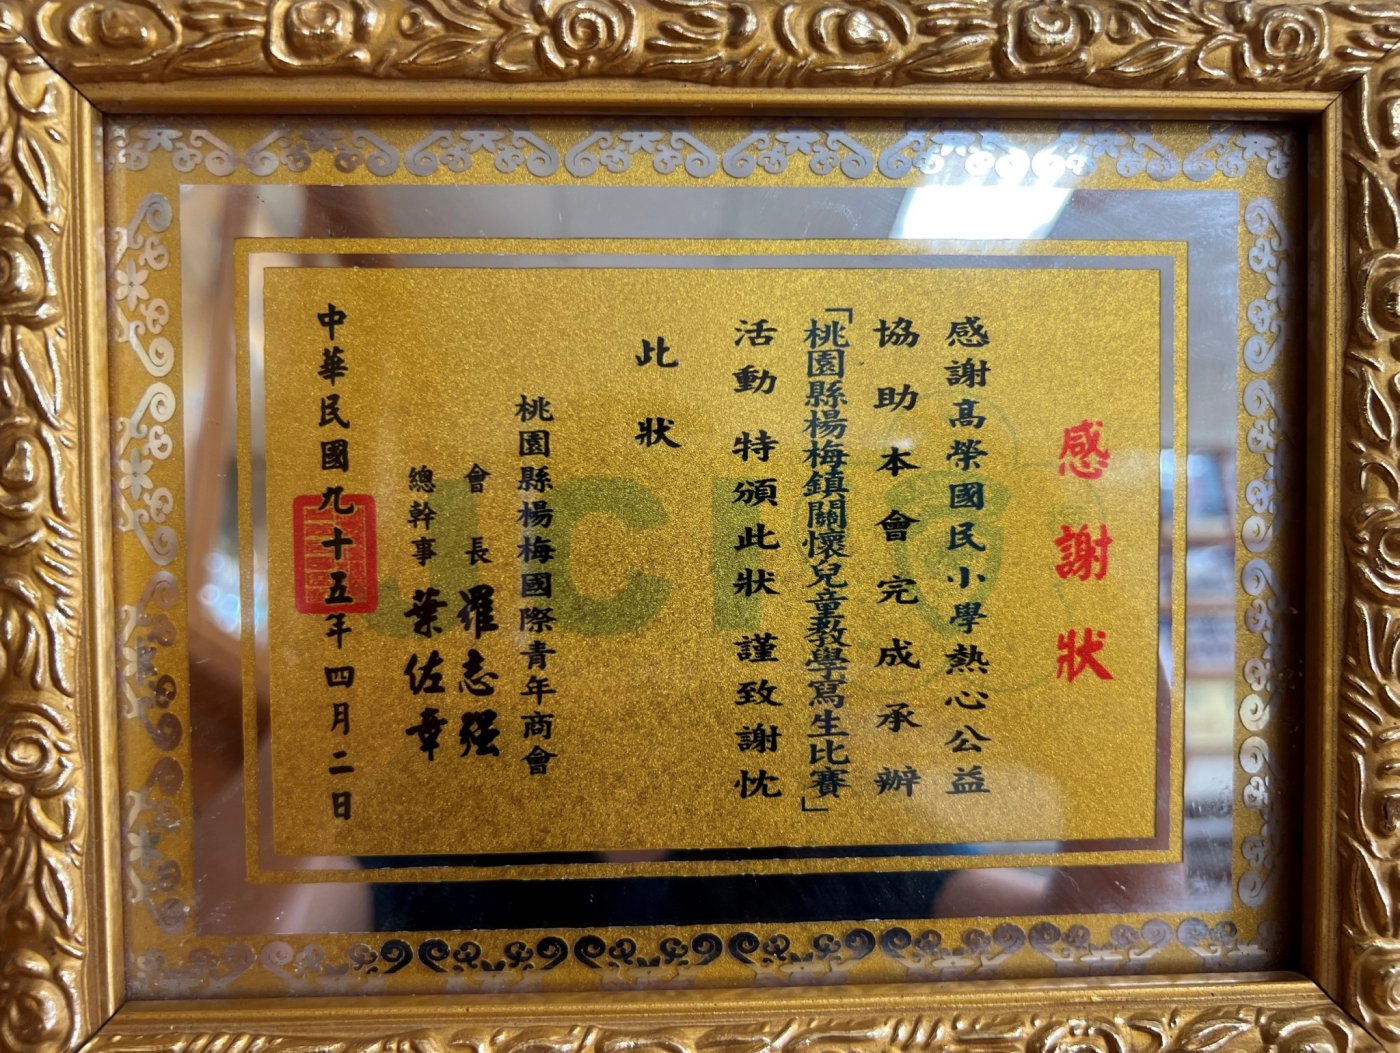 感謝狀
感謝高榮國民小學熱心公益
協助本會完成承辦
「桃園縣楊梅鎮關懷兒童教學寫生比賽」
活動 特頒此狀 謹致謝忱
此狀
桃園縣楊梅國際青年商會
會長 羅志强
總幹事 葉佐章
中華民國九十五年四月二日
JCI